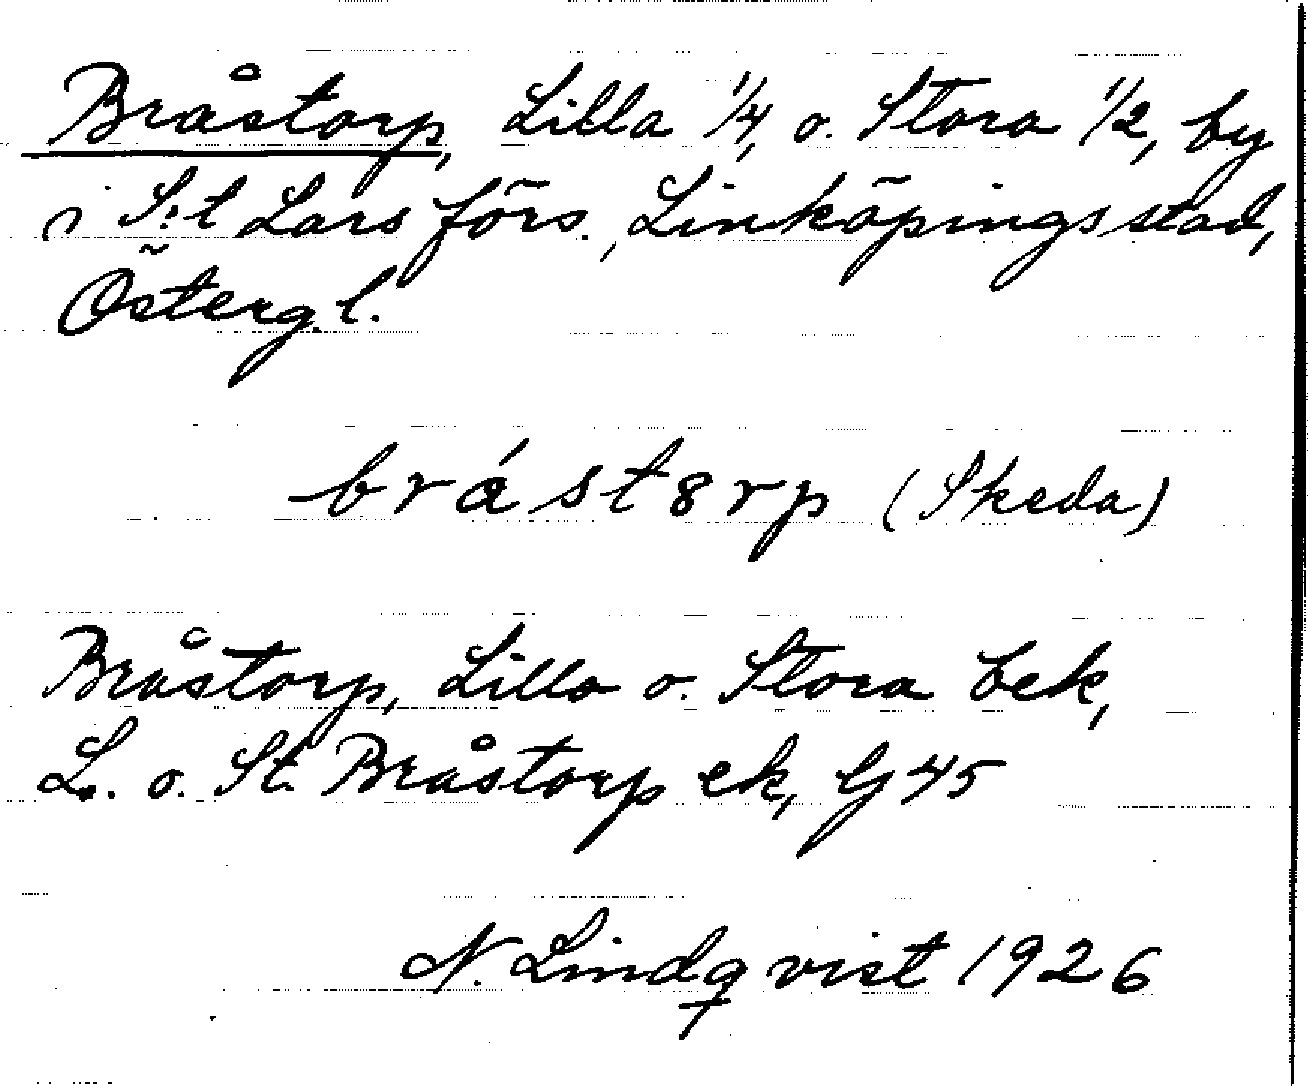 Bråstorp, Lilla 1/4, o. Stora 1/2, by
i S:t Lars förs., Linköpings stad,
Österg. l.
brást8rp (Skeda)
Bråstorp, Lilla o. Stora bek,
L. o. St. Bråstorp ek, G 45
N. Lindqvist 1926